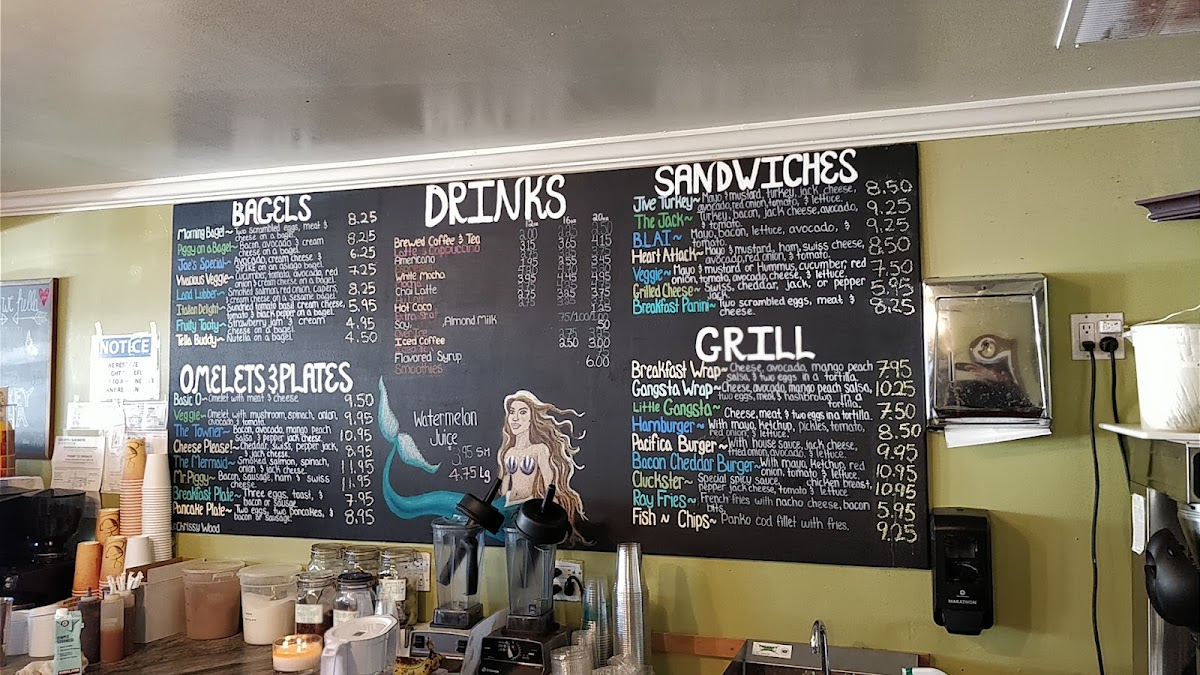 BAGELS
Morning Bagel~ Two scrambled eggs, meat & cheese on a bagel. 8.25
Piggy on a Bagel~ Bacon, avocado & cream cheese on a bagel. 8.25
Joe's Special~ Avocado, cream cheese & on an asiago bagel. 6.25
Vivacious Veggie~ Cucumber, tomato, avocado, red onion & cream cheese on a bagel. 7.25
Land Lubber~ Smoked salmon, red onion, capers, & cream cheese on a sesame bagel. 8.25
Italian Delight~ Sundried tomato basil cream cheese, tomato & black pepper on a bagel. 5.95
Fruity Tooty~ Strawberry jam & cream cheese on a bagel. 4.95
Tella Buddy~ Nutella on a bagel. 4.50
OMELETS & PLATES
Basic O~ Omelet with meat & cheese 9.50
Veggie~ Omelet with mushroom, spinach, onion, avocado, & tomato. 9.95
The Towner~ Bacon, avocado, mango peach salsa, & pepper jack cheese. 10.95
Cheese Please!~ Cheddar, swiss, pepper jack, & jack cheese. 8.95
The Mermaid~ Smoked salmon, spinach, onion & jack cheese. 11.95
Mr. Piggy~ Bacon, sausage, ham & swiss cheese. 11.95
Breakfast Plate~ Three eggs, toast, & bacon or sausage. 7.95
Pancake Plate~ Two eggs, two pancakes, & bacon or sausage. 8.95
Chrissy Wood
DRINKS
12oz 16oz 20oz
Brewed Coffee & Tea
Latte / Cappuccino 3.15 3.65 4.15
Americano
White Mocha
Chai Latte
Hot Coco
Extra Shot 75/100/1.00
Soy, Almond Milk .50
Iced Coffee
Flavored Syrup
Smoothies 6.00
Watermelon
Juice
3.95 Sm
4.75 Lg
SANDWICHES
Jive Turkey~ Mayo & mustard, turkey, jack cheese, avocado, red onion, tomato, & lettuce. 8.50
The Jack~ Turkey, bacon, jack cheese, avocado, & tomato. 9.25
B.L.A.T~ Mayo, bacon, lettuce, avocado, & tomato. 9.25
Heart Attack~ Mayo & mustard, ham, swiss cheese, avocado, red onion, & tomato. 8.50
Veggie~ Mayo & mustard or Hummus, cucumber, red onion, tomato, avocado, cheese, & lettuce. 7.50
Grilled Cheese~ Swiss, cheddar, jack, or pepper jack. 5.95
Breakfast Panini~ Two scrambled eggs, meat & cheese. 8.25
GRILL
Breakfast Wrap~ Cheese, avocado, mango peach salsa, & two eggs in a tortilla. 7.95
Gangsta Wrap~ Cheese, avocado, mango peach salsa, two eggs, meat & hashbrown in a tortilla. 10.25
Little Gangsta~ Cheese, meat, & two eggs in a tortilla. 7.50
Hamburger~ With mayo, ketchup, pickles, tomato, red onion, & lettuce. 8.50
Pacifica Burger~ With house sauce, jack cheese, fried onion, avocado, & lettuce. 9.95
Bacon Cheddar Burger~ With mayo, ketchup, red onion, tomato & lettuce 10.95
Cluckster~ Special spicy sauce, chicken breast, pepper jack cheese, tomato & lettuce 10.95
Ray Fries~ French fries with nacho cheese, bacon bits. 5.95
Fish n Chips~ Panko cod fillet with fries. 9.25
NOTICE
MARATHON